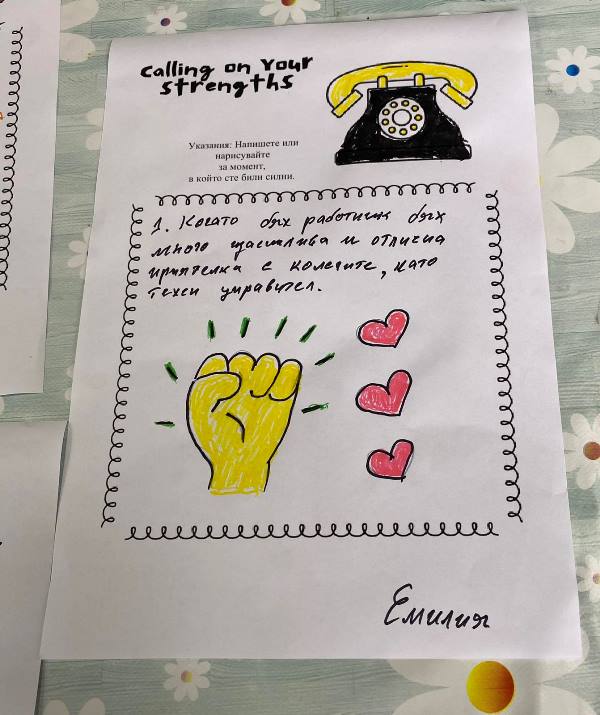 Calling on Your
strengths
Указания: Напишете или
нарисувайте
за момент,
в който сте били силни.
1. Когато бях работник бях
много щастлива и отлична
приятелка с колегите, като
техен управител.
Емилия